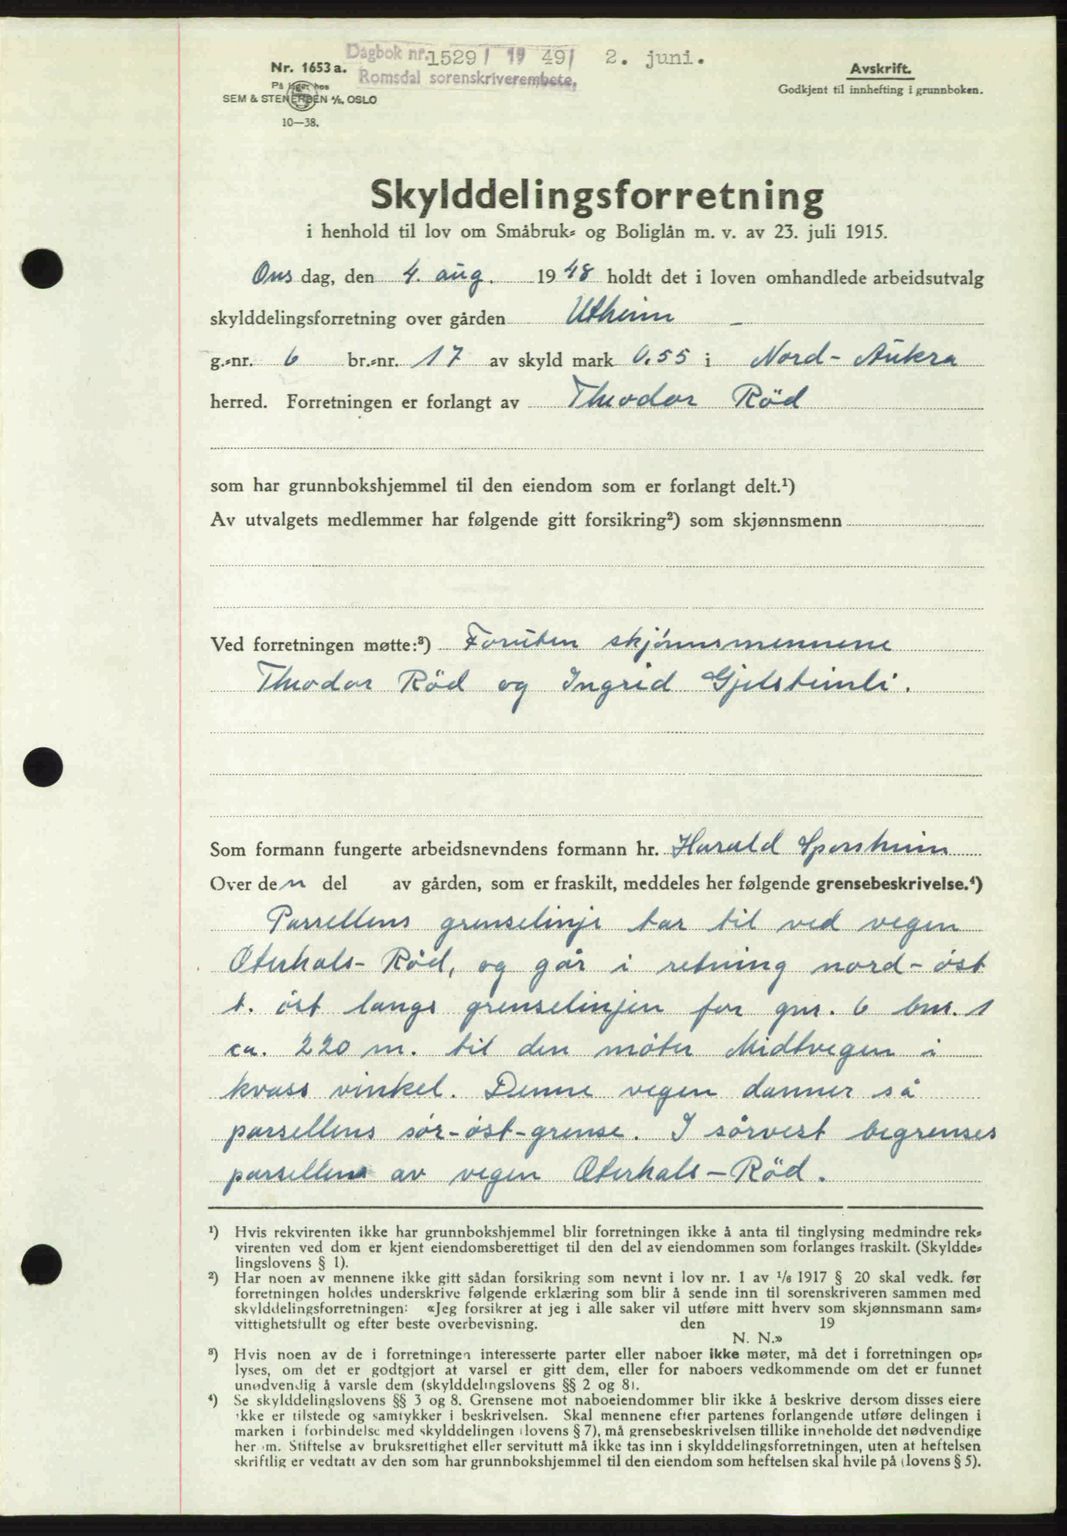 Dagbok nr. 1529 / 19 49 / 2. juni.
Romsdal sorenskriverembete.
Nr. 1653 a.
På lager hos
SEM & STENERSEN A/S, OSLO
10—38.
Avskrift.
Godkjent til innhefting i grunnboken.
Skylddelingsforretning
i henhold til lov om Småbruk- og Boliglån m. v. av 23. juli 1915.
Ons dag, den 4. aug. 19 48 holdt det i loven omhandlede arbeidsutvalg
skylddelingsforretning over gården Utheim
g.-nr. 6 br.-nr. 17 av skyld mark 0,55 i Nord-Aukra
herred. Forretningen er forlangt av Theodor Röd
som har grunnbokshjemmel til den eiendom som er forlangt delt.¹)
Av utvalgets medlemmer har følgende gitt forsikring²) som skjønnsmenn
Ved forretningen møtte:³) Foruten skjönnsmennene
Theodor Röd og Ingrid Gjelsteinli.
Som formann fungerte arbeidsnevndens formann hr. Harald Sporsheim
Over den del av gården, som er fraskilt, meddeles her følgende grensebeskrivelse.⁴)
Parsellens grenselinje tar til ved vegen
Oterhals-Röd, og går i retning nord-öst
t. öst langs grenselinjen for gnr. 6 bnr. 1
ca. 220 m. til den möter Midtvegen i
kvass vinkel. Denne vegen danner så
parsellens sör-öst-grense. I sörvest begrenses
parsellens av vegen Oterhals-Röd.
¹) Hvis rekvirenten ikke har grunnbokshjemmel blir forretningen ikke å anta til tinglysing medmindre rek-
virenten ved dom er kjent eiendomsberettiget til den del av eiendommen som forlanges fraskilt. (Skyldde-
lingslovens § 1).
²) Har noen av mennene ikke gitt sådan forsikring som nevnt i lov nr. 1 av 1/6 1917 § 20 skal vedk. før
forretningen holdes underskrive følgende erklæring som blir å sende inn til sorenskriveren sammen med
skylddelingsforretningen: «Jeg forsikrer at jeg i alle saker vil utføre mitt hverv som skjønnsmann sam-
vittighetsfullt og efter beste overbevisning. den 19
N. N.»
³) Hvis noen av de i forretningen interesserte parter eller naboer ikke møter, må det i forretningen op-
lyses, om det er godtgjort at varsel er gitt dem, eller for naboers vedkommende om det er funnet
unødvendig å varsle dem (skylddelingslovens §§ 2 og 8).
⁴) Se skylddelingslovens §§ 3 og 8. Grensene mot naboeiendommer blir ikke å beskrive dersom disses eiere
ikke er tilstede og samtykker i beskrivelsen. Skal mennene efter partenes forlangende utføre delingen i
marken i forbindelse med skylddelingen (lovens § 7), må grensebeskrivelsen tillike inneholde det nødvendige
her om. Stiftelse av bruksrettighet eller servitutt må ikke tas inn i skylddelingsforretningen, uten at heftelsen
skriftlig er vedtatt av den som har grunnbokshjemmel til den eiendom som heftelsen skal hvile på (lovens § 5).